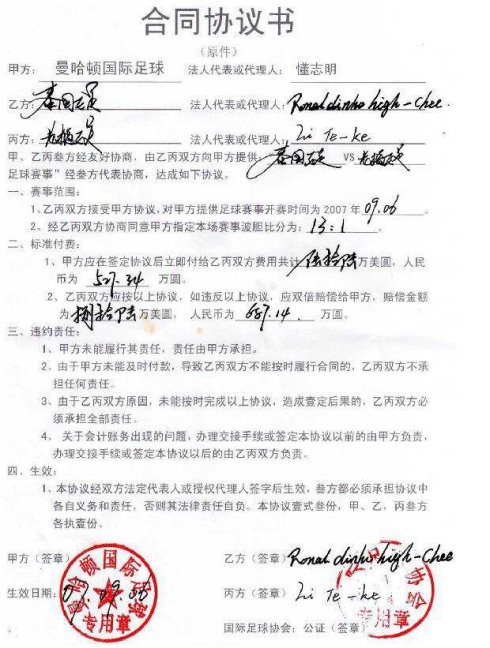 合同协议书
(原件)
甲方: 曼哈顿国际足球 法人代表或代理人: 懂志明
乙方: 法人代表或代理人: Ronal dinho high-Chee.
丙方: 法人代表或代理人: Li Te-ke
甲、乙丙叁方经友好协商,由乙丙双方向甲方提供: VS
足球赛事”经叁方代表协商,达成如下协议。
一、赛事范围:
1、乙丙双方接受甲方协议,对甲方提供足球赛事开赛时间为2007年 09.06 。
2、经乙丙双方协商同意甲方指定本场赛事波胆比分为: 13:1 。
二、标准付费:
1、甲方应在签定协议后立即付给乙丙双方费用共计 陆拾陆 万美圆,人民
币为 527.34 万圆。
2、乙丙双方应按以上协议,如违反以上协议,应双倍赔偿给甲方,赔偿金额
为 捌拾陆 万美圆, 人民币为 687.14. 万圆。
三、违约责任:
1、甲方未能履行其责任,责任由甲方承担。
2、由于甲方未能及时付款,导致乙丙双方不能按时履行合同的,乙丙双方不承
担任何责任。
3、由于乙丙双方原因,未能按时完成以上协议,造成壹定后果的,乙丙双方必
须承担全部责任。
4、关于会计账务出现的问题,办理交接手续或签定本协议以前的由甲方负责,
办理交接手续或签定本协议以后的由乙丙双方负责。
四、生效:
1、本协议经双方法定代表人或授权代理人签字后生效,叁方都必须承担协议中
各自义务和责任,否则其法律责任自负。本协议壹式叁份,甲、乙、丙叁方
各执壹份。
甲方(签章) 乙方(签章) Ronal dinho high-Chee
曼哈顿国际足球
专用章
生效日期: 07.09.06 丙方(签章) Li Te-ke
协会
专用章
国际足球协会:公证(签章)